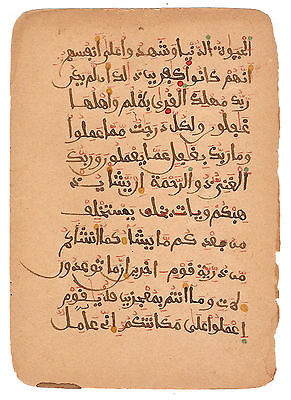 الحيوة الدنيا وشهدوا على انفسهم
انهم كانوا كفرين ذلك ان لم يكن
ربك مهلك القرى بظلم واهلها
غفلون ولكل درجت مما عملوا
وما ربك بغفل عما يعملون وربك
الغنى ذو الرحمة ان يشا يذ
هبكم ويات ويستخلف
من بعدكم ما يشا كما انشاكم
من ذرية قوم اخرين انما توعدون
لات وما انتم بمعجزين قل يقوم
اعملوا على مكانتكم انى عامل